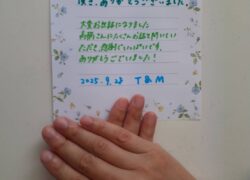 頂き、ありがとうございました
大変お世話になりました
さんにたくさんお話を聞いてい
ただき、感謝でいっぱいです。
ありがとうございました!
2025.9.28 T&M